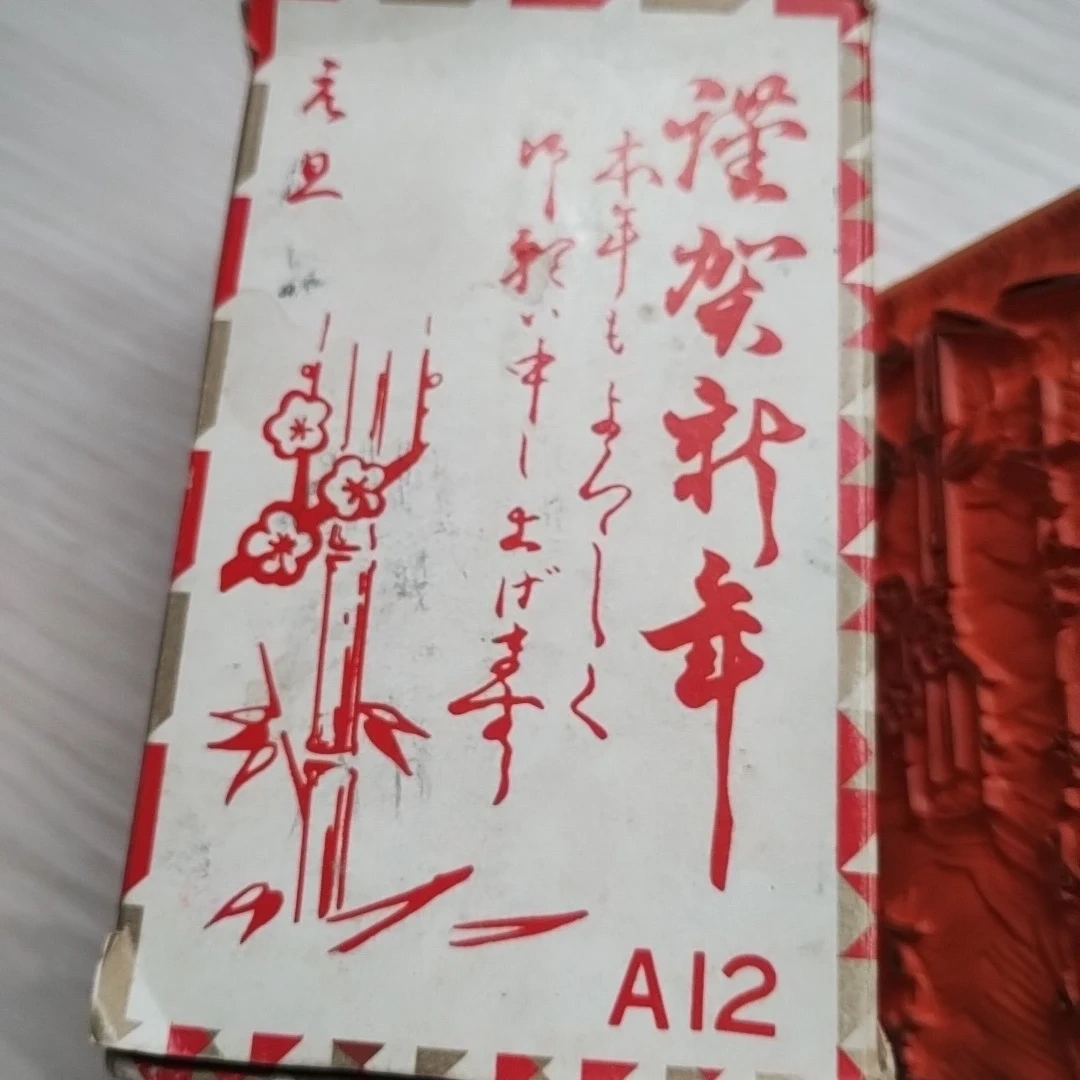 謹賀新年
本年もよろしく
御願い申し上げます
元旦
A12